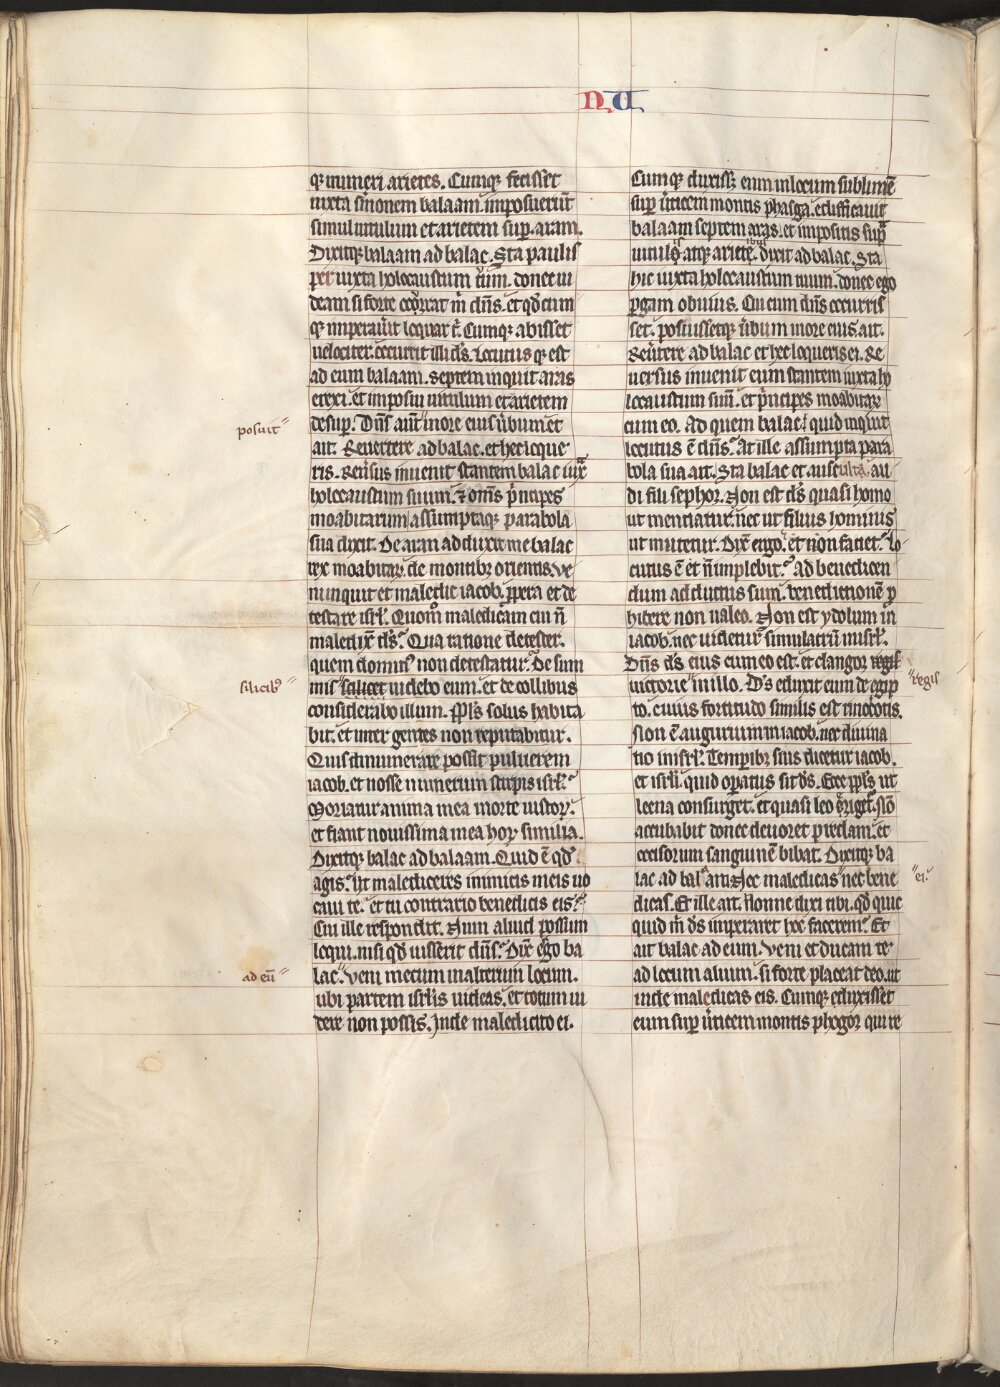 NU
q; numeri arietes. Cumq; fecisset
iuxta smonem balaam. imposuerūt
simul uitulum et arietem sup aram.
Dixitq; balaam ad balac. Sta paulis
per iuxta holocaustum tuum. donec ua
deam si forte occurrat m̄ dn̄s. et qd̄cum
q; imperauit loquar t̄. Cumq; abisset
uelociter. occurrit illi ds̄. Locutus q; est
ad eum balaam. Septem inquit aras
erexi. et imposui uitulum et arietem
desup. Dn̄s aut̄ more eius ūbum et
ait. Reuertere ad balac. et hec loque
ris. Reūsus inuenit stantem balac iux̄
holocaustum suum. et om̄s p̄ncipes
moabitarum assumptaq; parabola
sua dixit. De aran adduxit me balac
rex moabitaꝝ. de montibꝫ orientis. Ve
ni inquit et maledic iacob. ꝓpera et de
testare isrl̄. Quom̄ maledicam cui n̄
maledix̄ ds̄. Qua ratione detester.
quem dominus non detestatur. De sum
mis scilicet uidebo eum. et de collibus
considerabo illum. Ppl̄s solus habita
bit. et inter gentes non reputabitur.
Quis dinumerare possit puluerem
iacob. et nosse numerum stirpis isrl̄.
Moriatur anima mea morte iustoꝝ.
et fiant nouissima mea hoꝝ similia.
Dixitq; balac ad balaam. Quid ē qd̄
agis. Ut malediceres inimicis meis uo
caui te. et tu contrario benedicis eis.
Cui ille respondit. Num aliud possum
loqui. nisi qd̄ iusserit dn̄s. Dix̄ ergo ba
lac. Veni mecum in alterum locum.
ubi partem isrl̄is uideas. et totum ui
dere non possis. Inde maledicito ei.
posuit
silicibꝰ
ad eū
Cumq; duxisset eum in locum sublimē
sup ūticem montis phasga. edificauit
balaam septem aras. et impositis sup
uitulis atq; arietibus. dixit ad balac. Sta
hic iuxta holocaustum tuum. donec ego
ꝑgam obuius. Cui cum dn̄s occurris
set. posuissetq; ūbum in ore eius ait.
Reūtere ad balac et hec loqueris ei. Re
uersus inuenit eum stantem iuxta ho
locaustum suum. et p̄ncipes moabitaꝝ
cum eo. Ad quem balac. quid inquit
locutus ē dn̄s. At ille assumpta para
bola sua ait. Sta balac et ausculta. au
di fili sephor. Non est ds̄ quasi homo
ut mentiatur. nec ut filius hominis
ut mutetur. Dix̄ ergo. et non faciet. Lo
cutus ē et n̄ implebit. Ad benedicen
dum adductus sum. benedictionē p
hibere non ualeo. Non est ydolum in
iacob. nec uidetur simulacrū in isrl̄.
Dn̄s ds̄ eius cum eo est. et clangor regis
uictorie in illo. Ds̄ eduxit eum de egip
to. cuius fortitudo similis est rinocerotis.
Non ē augurium in iacob. nec diuina
tio in isrl̄. Temporibꝫ suis dicetur iacob.
et isrl̄. quid opatus sit ds̄. Ecce ppl̄s ut
leena consurget. et quasi leo erigetur. Nō
accubabit donec deuoret predam. et
occisorum sanguinē bibat. Dixitq; ba
lac ad bal̄aam. Nec maledicas nec bene
dicas. Et ille ait. Nonne dixi tibi. qd̄ quic
quid m̄ ds̄ imperaret hoc facerem. Et
ait balac ad eum. Veni et ducam te
ad locum alium. si forte placeat deo. ut
inde maledicas eis. Cumq; eduxisset
eum sup ūticem montis phegor qui re
regis
ei.